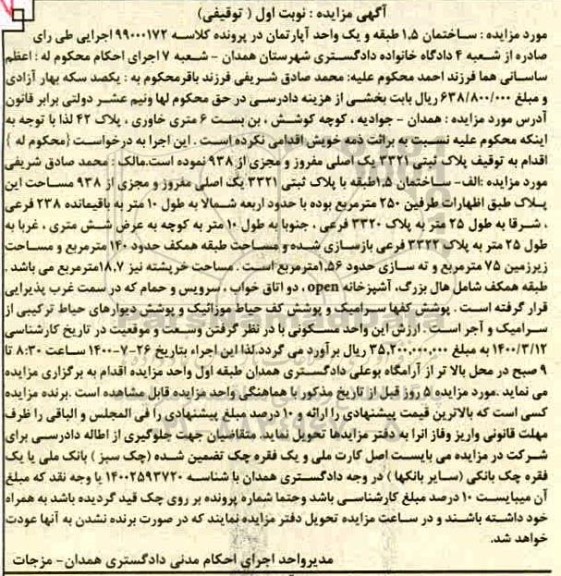 آگهی مزایده : نوبت اول ( توقیفی)
مورد مزایده : ساختمان ۱,۵ طبقه و یک واحد آپارتمان در پرونده کلاسه ۹۹۰۰۰۱۷۲ اجرایی طی رای
صادره از شعبه ۴ دادگاه خانواده دادگستری شهرستان همدان - شعبه ۷ اجرای احکام محکوم له : اعظم
ساسانی هما فرزند احمد محکوم علیه: محمد صادق شریفی فرزند باقرمحکوم به : یکصد سکه بهار آزادی
و مبلغ ۶۳۸/۸۰۰/۰۰۰ ریال بابت بخشی از هزینه دادرسی در حق محکوم لها ونیم عشر دولتی برابر قانون
آدرس مورد مزایده : همدان - جوادیه ، کوچه کوشش ، بن بست ۶ متری خاوری ، پلاک ۴۲ لذا با توجه به
اینکه محکوم علیه نسبت به برائت ذمه خویش اقدامی نکرده است . این اجرا به درخواست {محکوم له }
اقدام به توقیف پلاک ثبتی ۳۳۲۱ یک اصلی مفروز و مجزی از ۹۳۸ نموده است.مالک : محمد صادق شریفی
مورد مزایده :الف- ساختمان ۱,۵طبقه با پلاک ثبتی ۳۳۲۱ یک اصلی مفروز و مجزی از ۹۳۸ مساحت این
پلاک طبق اظهارات طرفین ۲۵۰ مترمربع بوده با حدود اربعه شمالا به طول ۱۰ متر به باقیمانده ۲۳۸ فرعی
، شرقا به طول ۲۵ متر به پلاک ۳۳۲۰ فرعی ، جنوبا به طول ۱۰ متر به کوچه به عرض شش متری ، غربا به
طول ۲۵ متر به پلاک ۳۳۲۲ فرعی بازسازی شده و مساحت طبقه همکف حدود ۱۴۰ مترمربع و مساحت
زیرزمین ۷۵ مترمربع و ته سازی حدود ۱,۵۶مترمربع است . مساحت خرپشته نیز ۱۸,۷مترمربع می باشد .
طبقه همکف شامل هال بزرگ، آشپزخانه open ، دو اتاق خواب ، سرویس و حمام که در سمت غرب پذیرایی
قرار گرفته است . پوشش کفها سرامیک و پوشش کف حیاط موزائیک و پوشش دیوارهای حیاط ترکیبی از
سرامیک و آجر است . ارزش این واحد مسکونی با در نظر گرفتن وسعت و موقعیت در تاریخ کارشناسی
۱۴۰۰/۳/۱۲ به مبلغ ۳۵,۲۰۰,۰۰۰,۰۰۰ ریال برآورد می گردد.لذا این اجراء بتاریخ ۲۶-۷-۱۴۰۰ ساعت ۸:۳۰ تا
۹ صبح در محل بالا تر از آرامگاه بوعلی دادگستری همدان طبقه اول واحد مزایده اقدام به برگزاری مزایده
می نماید .مورد مزایده ۵ روز قبل از تاریخ مذکور با هماهنگی واحد مزایده قابل مشاهده است .برنده مزایده
کسی است که بالاترین قیمت پیشنهادی را ارائه و ۱۰ درصد مبلغ پیشنهادی را فی المجلس و الباقی را ظرف
مهلت قانونی واریز وفاز اترا به دفتر مزایدها تحویل نماید. متقاضیان جهت جلوگیری از اطاله دادرسی برای
شرکت در مزایده می بایست اصل کارت ملی و یک فقره چک تضمین شده (چک سبز ) بانک ملی یا یک
فقره چک بانکی (سایر بانکها ) در وجه دادگستری همدان با شناسه ۱۴۰۰۲۵۹۳۷۲۰ یا وجه نقد که مبلغ
آن میبایست ۱۰ درصد مبلغ کارشناسی باشد وحتما شماره پرونده بر روی چک قید گردیده باشد به همراه
خود داشته باشند و در ساعت مزایده تحویل دفتر مزایده نمایند که در صورت برنده نشدن به آنها عودت
خواهد شد.
مدیرواحد اجرای احکام مدنی دادگستری همدان- مزجات